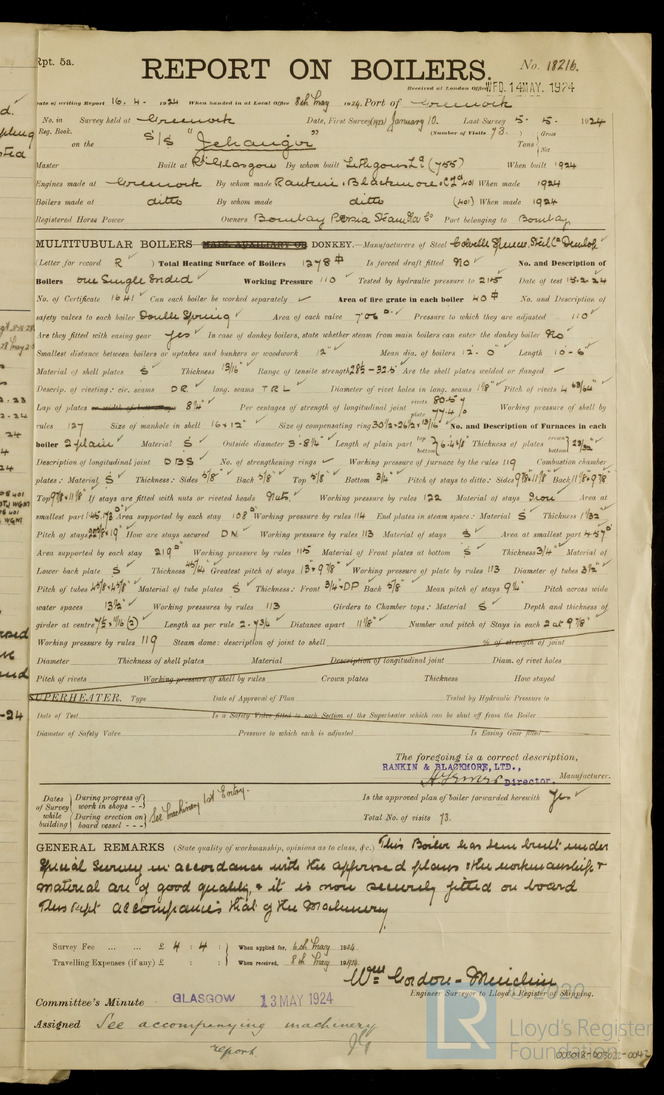 Rpt. 5a.
REPORT ON BOILERS.
No. 18216.
Received at London Office WED. 14 MAY. 1924
Date of writing Report 16. 4. 1924 When handed in at Local Office 8th May 1924. Port of Greenock
No. in Survey held at Greenock Date, First Survey (1923) January 10. Last Survey 5. 5. 1924
Reg. Book. (Number of Visits 73.) Gross
on the S/S "Jehangir" Tons Net
Master Built at Pt Glasgow By whom built Lithgows Ld (755) When built 1924
Engines made at Greenock By whom made Rankin & Blackmore Ld 401 When made 1924
Boilers made at ditto By whom made ditto (401) When made 1924
Registered Horse Power Owners Bombay Persia Steam Nav Co Port belonging to Bombay
MULTITUBULAR BOILERS MAIN, AUXILIARY OR DONKEY.—Manufacturers of Steel
(Letter for record R) Total Heating Surface of Boilers 1278 Is forced draft fitted No No. and Description of
Boilers one Single Ended Working Pressure 110 Tested by hydraulic pressure to 215 Date of test 15.2.24
No. of Certificate 1641 Can each boiler be worked separately Area of fire grate in each boiler 40 No. and Description of
safety valves to each boiler Double Spring Area of each valve 7.06 Pressure to which they are adjusted 110
Are they fitted with easing gear yes In case of donkey boilers, state whether steam from main boilers can enter the donkey boiler No
Smallest distance between boilers or uptakes and bunkers or woodwork 12" Mean dia. of boilers 12-0" Length 10-6"
Material of shell plates S Thickness 13/16" Range of tensile strength 28½-32.5 Are the shell plates welded or flanged
Descrip. of riveting: cir. seams DR long. seams TRL Diameter of rivet holes in long. seams 1⅛" Pitch of rivets 4 63/64"
Lap of plates or width of butt straps 8¼" Per centages of strength of longitudinal joint rivets 80.5 plate 77.4 Working pressure of shell by
rules 127 Size of manhole in shell 16×12" Size of compensating ring No. and Description of Furnaces in each
boiler 2 plain Material S Outside diameter 3-8¼" Length of plain part top bottom Thickness of plates crown bottom 23/32"
Description of longitudinal joint DBS No. of strengthening rings Working pressure of furnace by the rules 119 Combustion chamber
plates: Material S Thickness: Sides 5/8" Back 5/8" Top 5/8" Bottom 3/4" Pitch of stays to ditto: Sides 9⅞×11⅛" Back 11⅛×9⅞
Top 9⅞×11⅛" If stays are fitted with nuts or riveted heads Nuts. Working pressure by rules 122 Material of stays Iron Area at
smallest part Area supported by each stay 108 Working pressure by rules 114 End plates in steam space: Material S Thickness
Pitch of stays How are stays secured DN Working pressure by rules 113 Material of stays S Area at smallest part 4.57
Area supported by each stay 219 Working pressure by rules 115 Material of Front plates at bottom S Thickness 3/4" Material of
Lower back plate S Thickness 45/64 Greatest pitch of stays 13×9⅞" Working pressure of plate by rules 113 Diameter of tubes 3½"
Pitch of tubes 4⅝×4⅝" Material of tube plates S Thickness: Front 3/4+DP Back 5/8" Mean pitch of stays 9¼" Pitch across wide
water spaces 13½" Working pressures by rules 113 Girders to Chamber tops: Material S Depth and thickness of
girder at centre Length as per rule 2-7¾ Distance apart 11⅛" Number and pitch of Stays in each 2 at 9⅞"
Working pressure by rules 119 Steam dome: description of joint to shell % of strength of joint
Diameter Thickness of shell plates Material Description of longitudinal joint Diam. of rivet holes
Pitch of rivets Working pressure of shell by rules Crown plates Thickness How stayed
SUPERHEATER. Type Date of Approval of Plan Tested by Hydraulic Pressure to
Date of Test Is a Safety Valve fitted to each Section of the Superheater which can be shut off from the Boiler
Diameter of Safety Valve Pressure to which each is adjusted Is Easing Gear fitted
The foregoing is a correct description,
RANKIN & BLACKMORE, LTD.,
Director. Manufacturer.
Dates of Survey while building During progress of work in shops - - During erection on board vessel - - - See Machinery 1st Entry.
Is the approved plan of boiler forwarded herewith Yes
Total No. of visits 73.
GENERAL REMARKS (State quality of workmanship, opinions as to class, &c.) This Boiler has been built under
Special Survey in accordance with the approved plans & the workmanship &
material are of good quality, & it is now securely fitted on board
This Rept accompanies that of the Machinery
Survey Fee ... ... £ 4 : 4 : When applied for, 6th May 1924.
Travelling Expenses (if any) £ : : When received, 8th May 1924.
Wm Gordon-Minchin
Engineer Surveyor to Lloyd's Register of Shipping.
Committee's Minute GLASGOW 13 MAY 1924
Assigned See accompanying machinery
report.
© 2020
LR
Lloyd's Register
Foundation